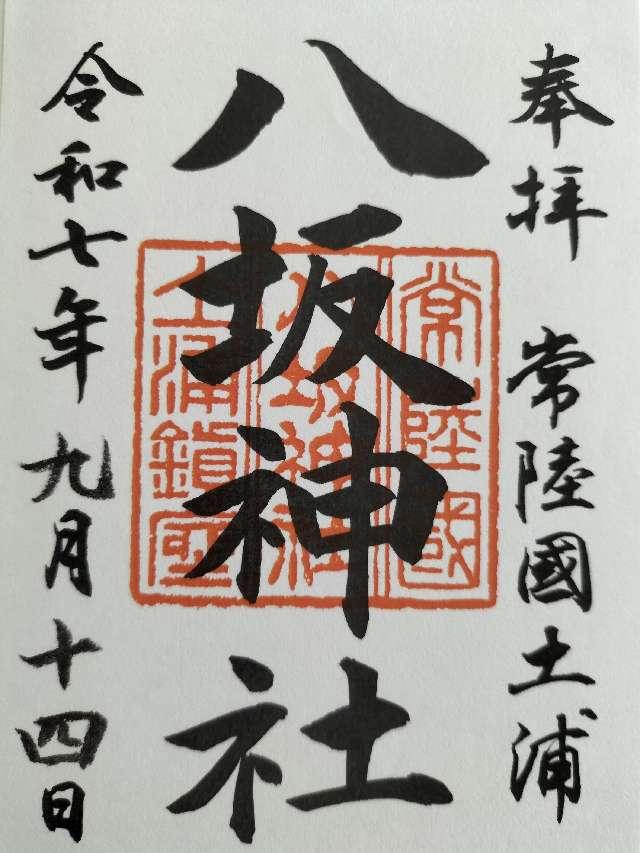 奉拝 常陸國土浦
八坂神社
令和七年九月十四日
常陸國
八坂神社
土浦鎮座